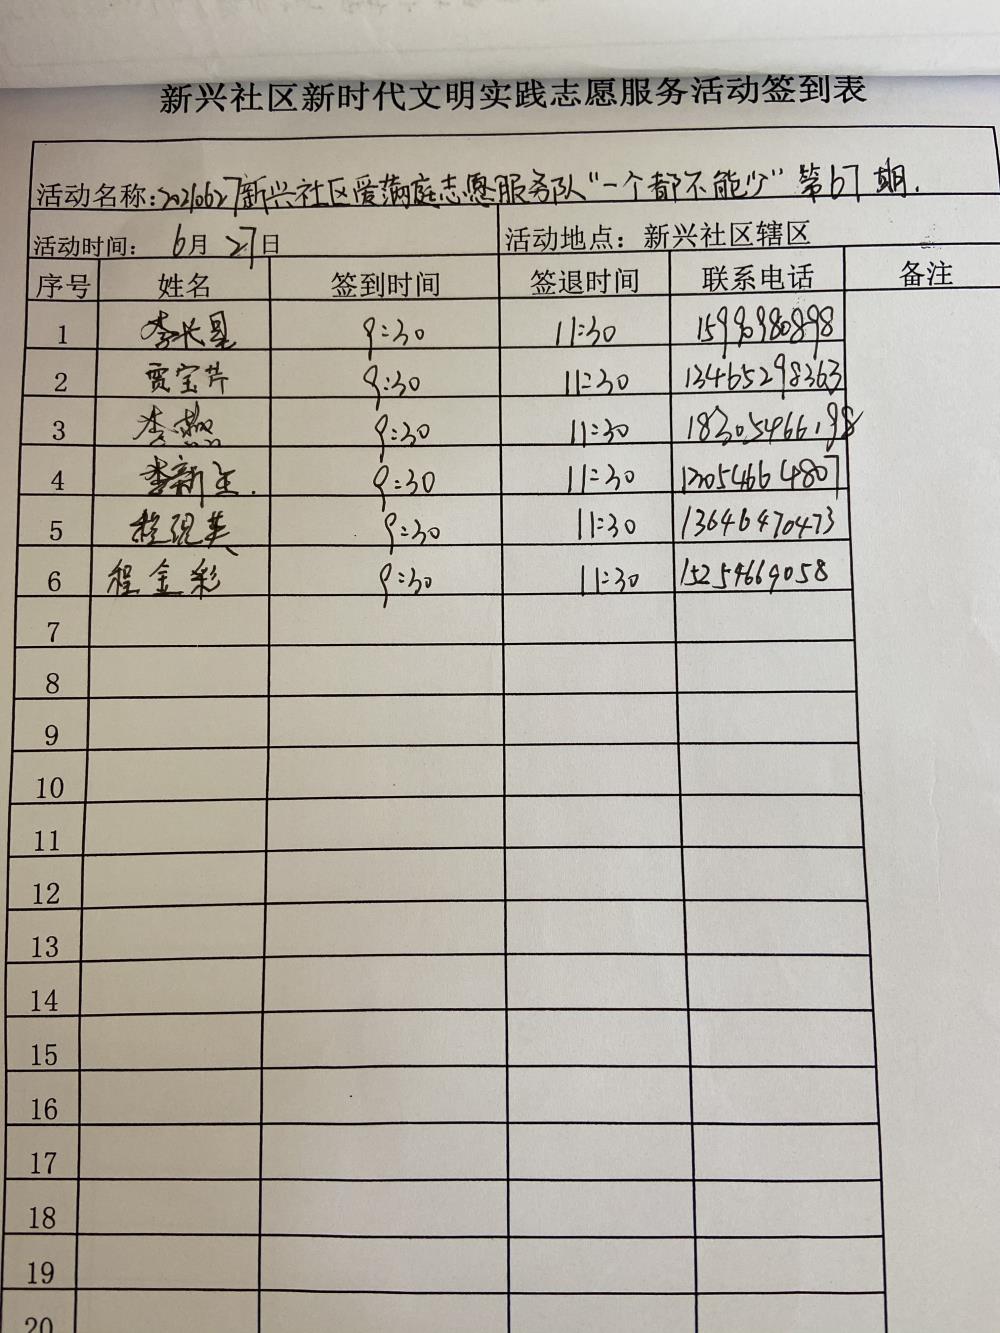 新兴社区新时代文明实践志愿服务活动签到表
活动名称:20210627新兴社区爱满庭志愿服务队“一个都不能少”第67期.
活动时间: 6月27日 活动地点: 新兴社区辖区
序号 姓名 签到时间 签退时间 联系电话 备注
1 李长星 9:30 11:30 15990980898
2 贾宝芹 9:30 11:30 13465298363
3 李 9:30 11:30
4 李新生. 9:30 11:30 13054664807
5 程现英 9:30 11:30 13646470473
6 程金彩 9:30 11:30 15254669058
7
8
9
10
11
12
13
14
15
16
17
18
19
20